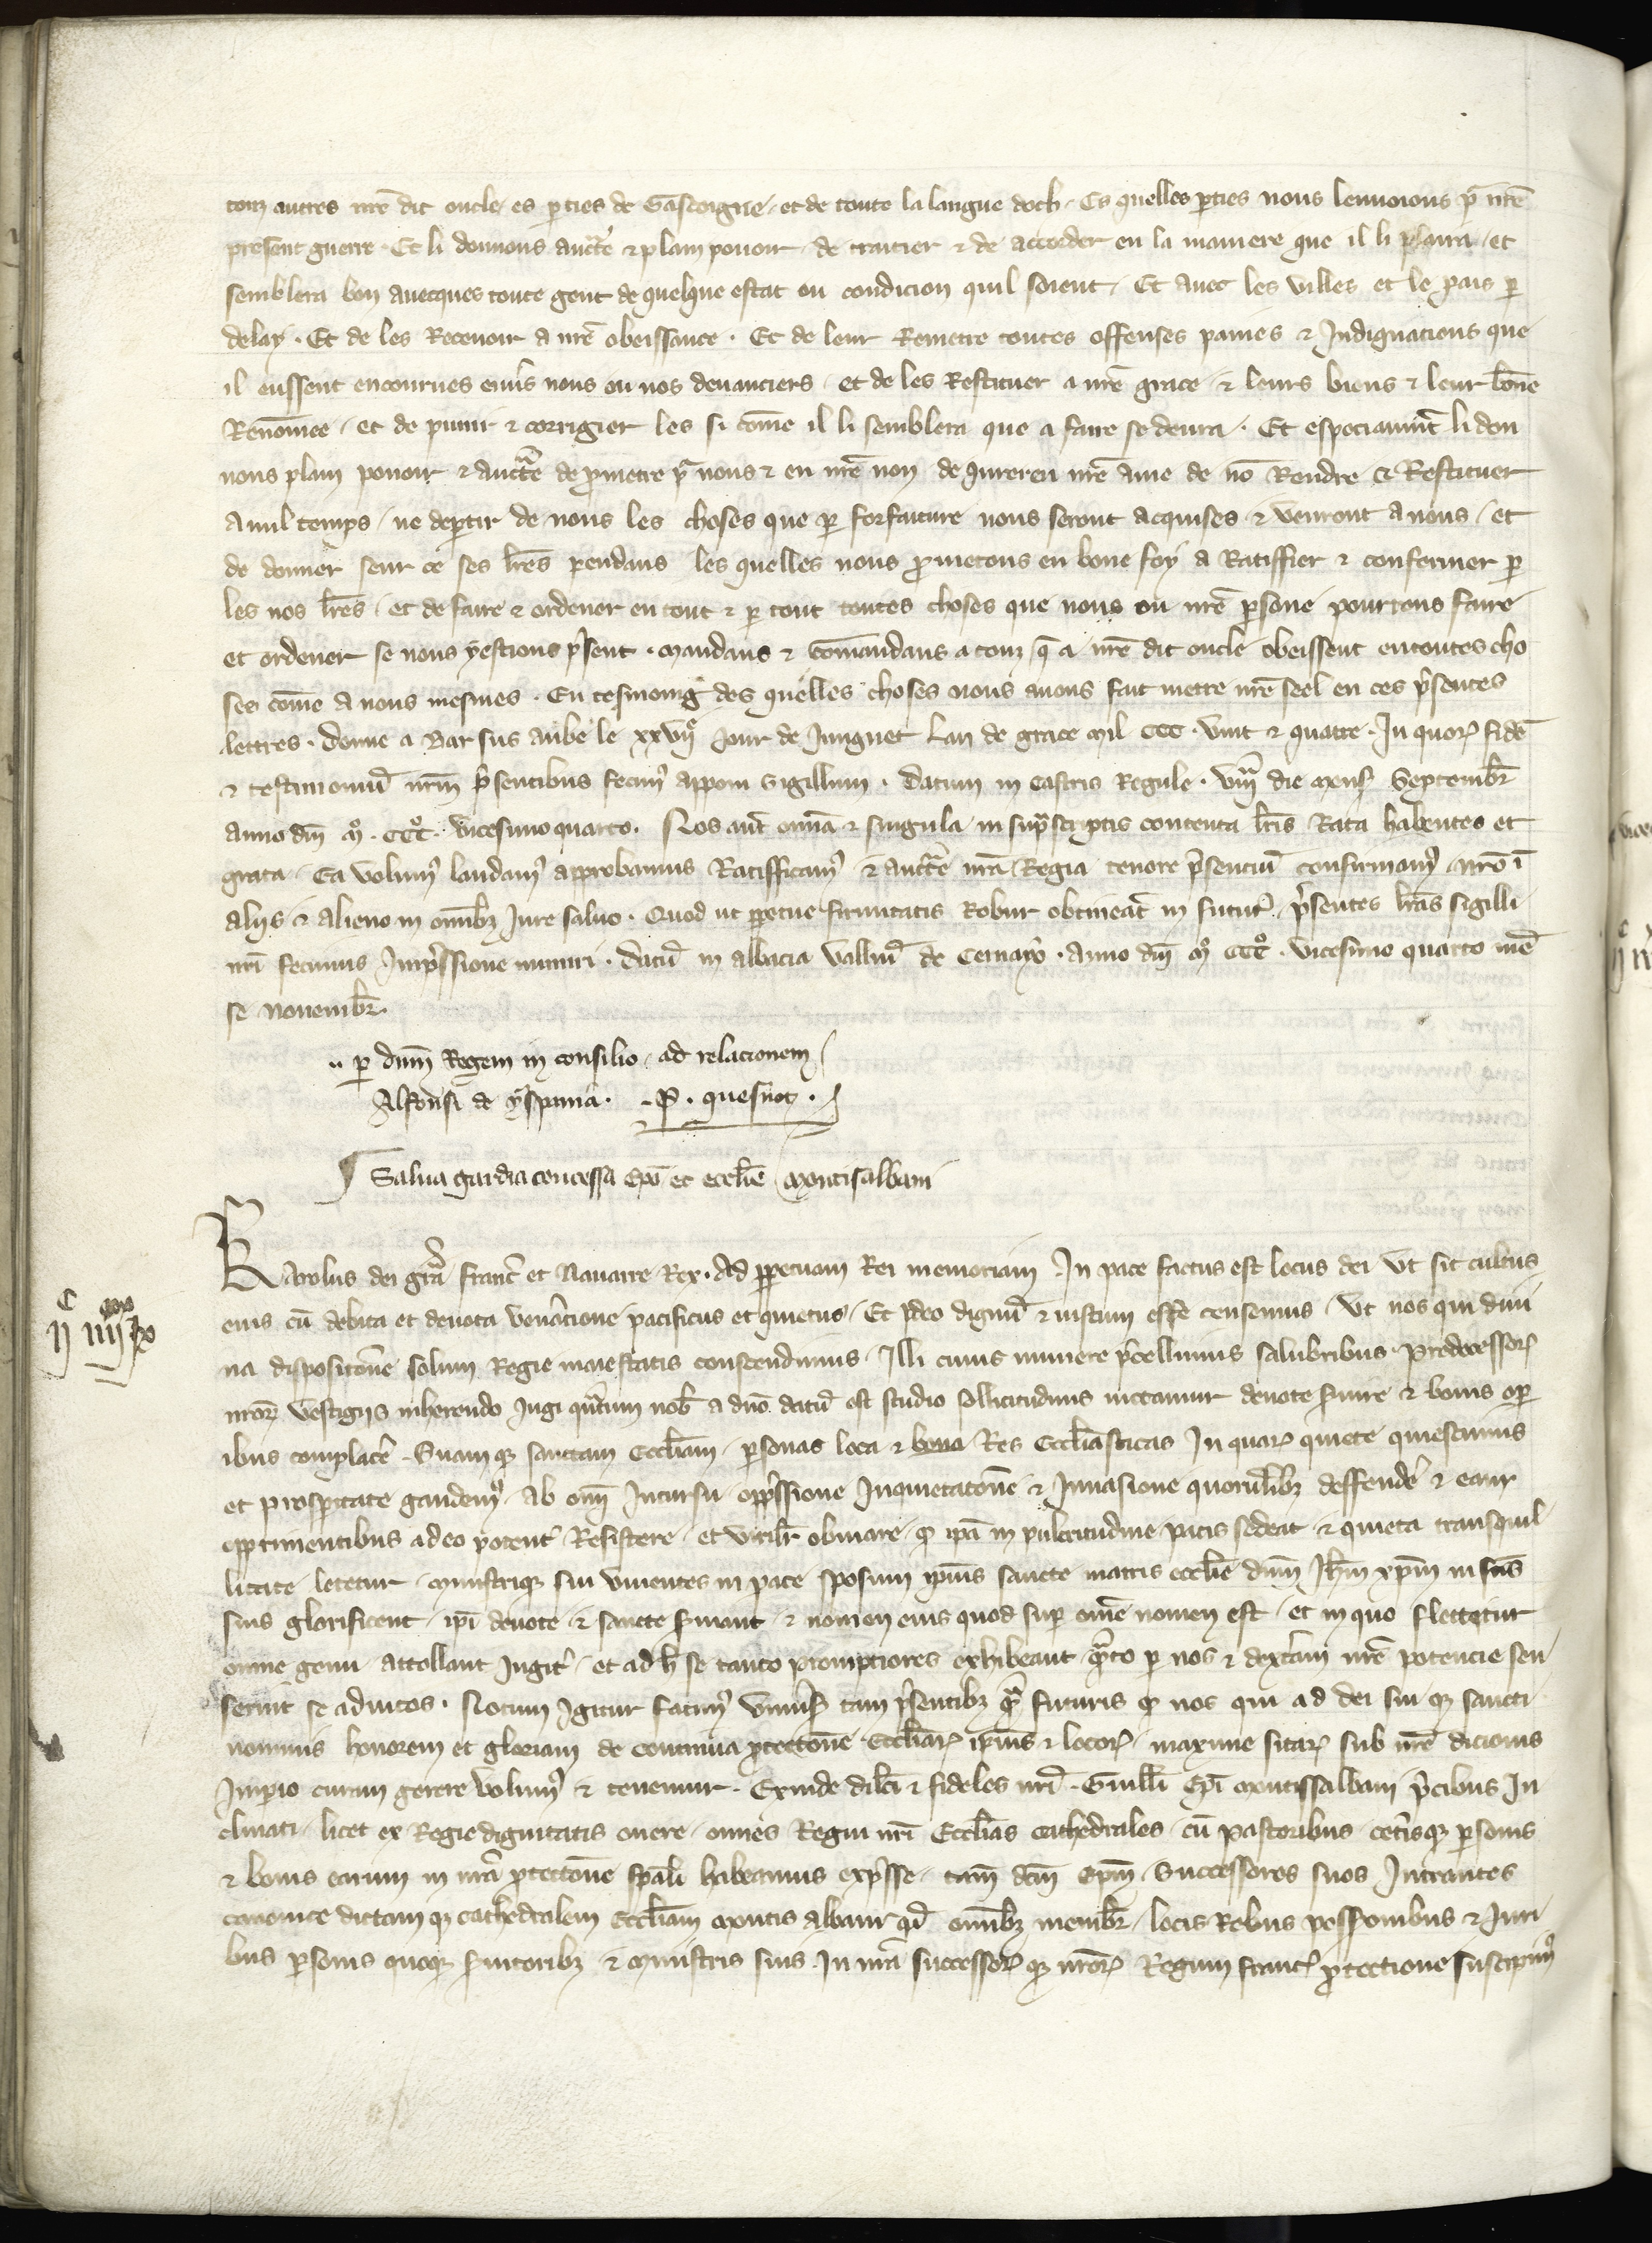 touz autres nre dit oncle es pties de Gascoigne et de toute la langue doch. Es quelles pties nous lenuoions pr nre
present guerre. Et li donnons auctte & plain pouoir de traitier & de accorder en la maniere que il li plaira et
semblera bon auecques toute gent de quelque estat ou condicion quil soient. Et auec les villes et le pais p
delay. Et de les Receuoir a nre obeissance. Et de leur Remetre toutes offenses paines & Indignacions que
il eussent encourues enuers nous ou nos deuanciers et de les Restituer a nre grace & leurs biens & leur bone
Renomee et de punir & corrigier les si come il li semblera que a faire se deura. Et especiaumt li don
nons plain pouoir & auctte de pmetre pr nous & en nre non de iurer en nre ame de no Rendre & Restituer
a nul temps ne deptir de nous les choses que p forfaiture nous seront acquises & venront a nous et
de donner seur ce ses lres pendans les quelles nous pmetons en bone foy a Ratiffier & confermer p
les nos lres et de faire & ordener en tout & p tout toutes choses que nous ou nre psone pourrons faire
et ordener se nous y estions psent. Mandans & comandans a touz q a nre dit oncle obeissent en toutes cho
ses come a nous mesmes. En tesmoing des quelles choses nous auons fait mettre nre seel en ces psentes
lettres. Donne a Bar sus aube le xxviij jour de Jungnet Lan de grace mil CCC. vint & quatre. In quor fide
& testimoniu nrm psentibus fecim apponi sigillum. Datum in castris Regule. viija die mens Septembr
anno dni mo. CCCo. vicesimo quarto. Nos aut omia & singula in suprascriptis contenta lris Rata habentes et
grata Ea volum laudam approbamus Ratifficam & auctte nra Regia tenore psentiu confirmam nro i
alijs & alieno in omibz Jure saluo. Quod ut ppetue firmitatis Robur obtineat in futur psentes lras sigilli
nri fecimus Impssione muniri. Datu in abbacia valliu de Cernayo. anno dni mo CCCo. vicesimo quarto me
se nouembr.
p dnm Regem in consilio ad relacionem
Alfonsi de yspania. P. quesnot.
Salua gardia concessa Epo et ecclie Montisalbani
Karolus dei gra Franc et Nauarre Rex. Ad ppetuam Rei memoriam. In pace factus est locus dei Vt sit cultus
eius cu debita et deuota venacione pacificus et quietus. Et ideo dignu & iustum esse censemus Vt nos qui diui
na dispositone solium Regie maiestatis conscendimus Illi cuius munere pcellimus salubribus predecessor
nror vestigijs inherendo Jugi quatum nob a dno datu est studio sollicitudinis nictamur deuote suire & bonis op
ibus complace. Suam qz sanctam Eccliam psonas loca & bona Res Eccliasticas In quar quiete quiescimus
et prospitate gaudem ab omi Incursu oppssione Inquietatone & Inuasione quorulibz deffende & ear
opprimentibus adeo potent Resistere et virilr obuiare q ipa in pulcritudine pacis sedeat & quieta tranquil
litate letetur ministrique sui viuentes in pace sposum ipius sancte matris ecclie dnm Jhm xpm in scis
suis glorificent ipi deuote & sancte suiant & nomen eius quod sup ome nomen est et in quo flectetur
omne genu attollant Jugit et ad h se tanto promptiores exhibeant qnto p nos & dextam nre potencie sen
serint se adiutos. Notum Igitur facim vniuis tam psentibz q futuris q nos qui ad dei sui qz sancti
nominis honorem et gloriam de continua ptectone Eccliar ipius & locor maxime sitar sub nre dicionis
Impio curam gerere volum & tenemur. Exinde dilci & fideles nri. Guilli Epi montissalbani pcibus In
clinati licet ex Regie dignitatis onere omes Regni nri Ecclias cathedrales cu pastoribus cetisqz psonis
& bonis earum in nra ptectone spali habeamus expsse tam dcm Epm Successores suos Intrantes
canonice dictam qz cathedralem Eccliam Montis albani cu omibz membr locis Rebus possionibus & Juri
bus psonis quoqz suitoribz & ministris suis In nra successor qz nror Regum Franc ptectione suscipim